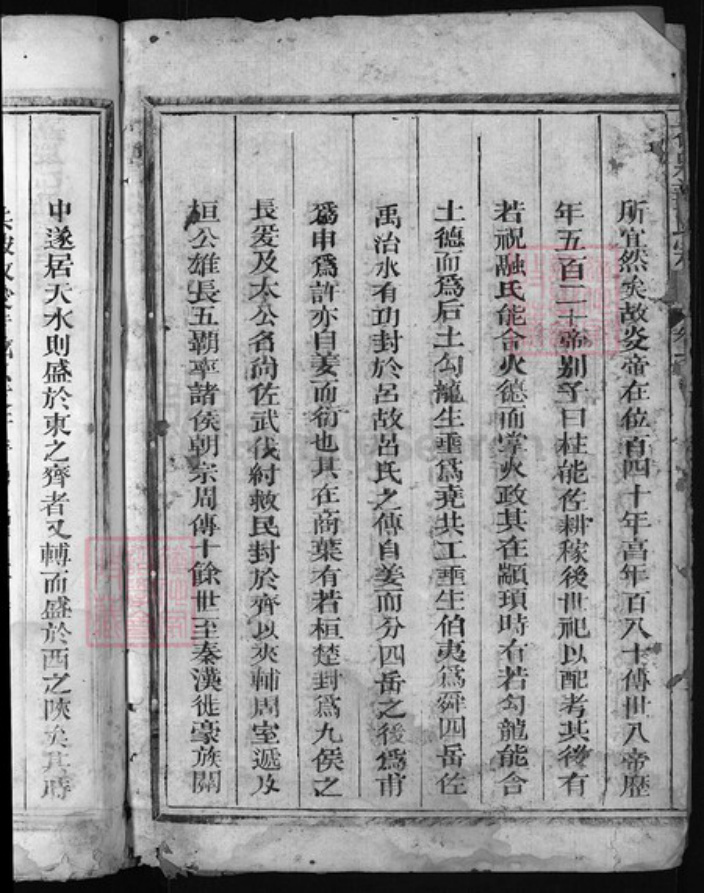 所宜然矣故炎帝在位百四十年高年百八十傳世八帝歷
年五百二十帝别子曰柱能佐耕稼後世祀以配考其後有
若祝融氏能合火德而掌火政其在顓頊時有若勾龍能合
土德而爲后土勾龍生垂爲堯共工垂生伯夷爲舜四岳佐
禹治水有功封於呂故呂氏之傳自姜而分四岳之後爲甫
爲申爲許亦自姜而衍也其在商葉有若桓楚封爲九侯之
長爰及太公名尚佐武伐紂救民封於齊以夾輔周室遞及
桓公雄長五霸率諸侯朝宗周傳十餘世至秦漢徙豪族關
中遂居天水則盛於東之齊者又轉而盛於西之陝矣其時